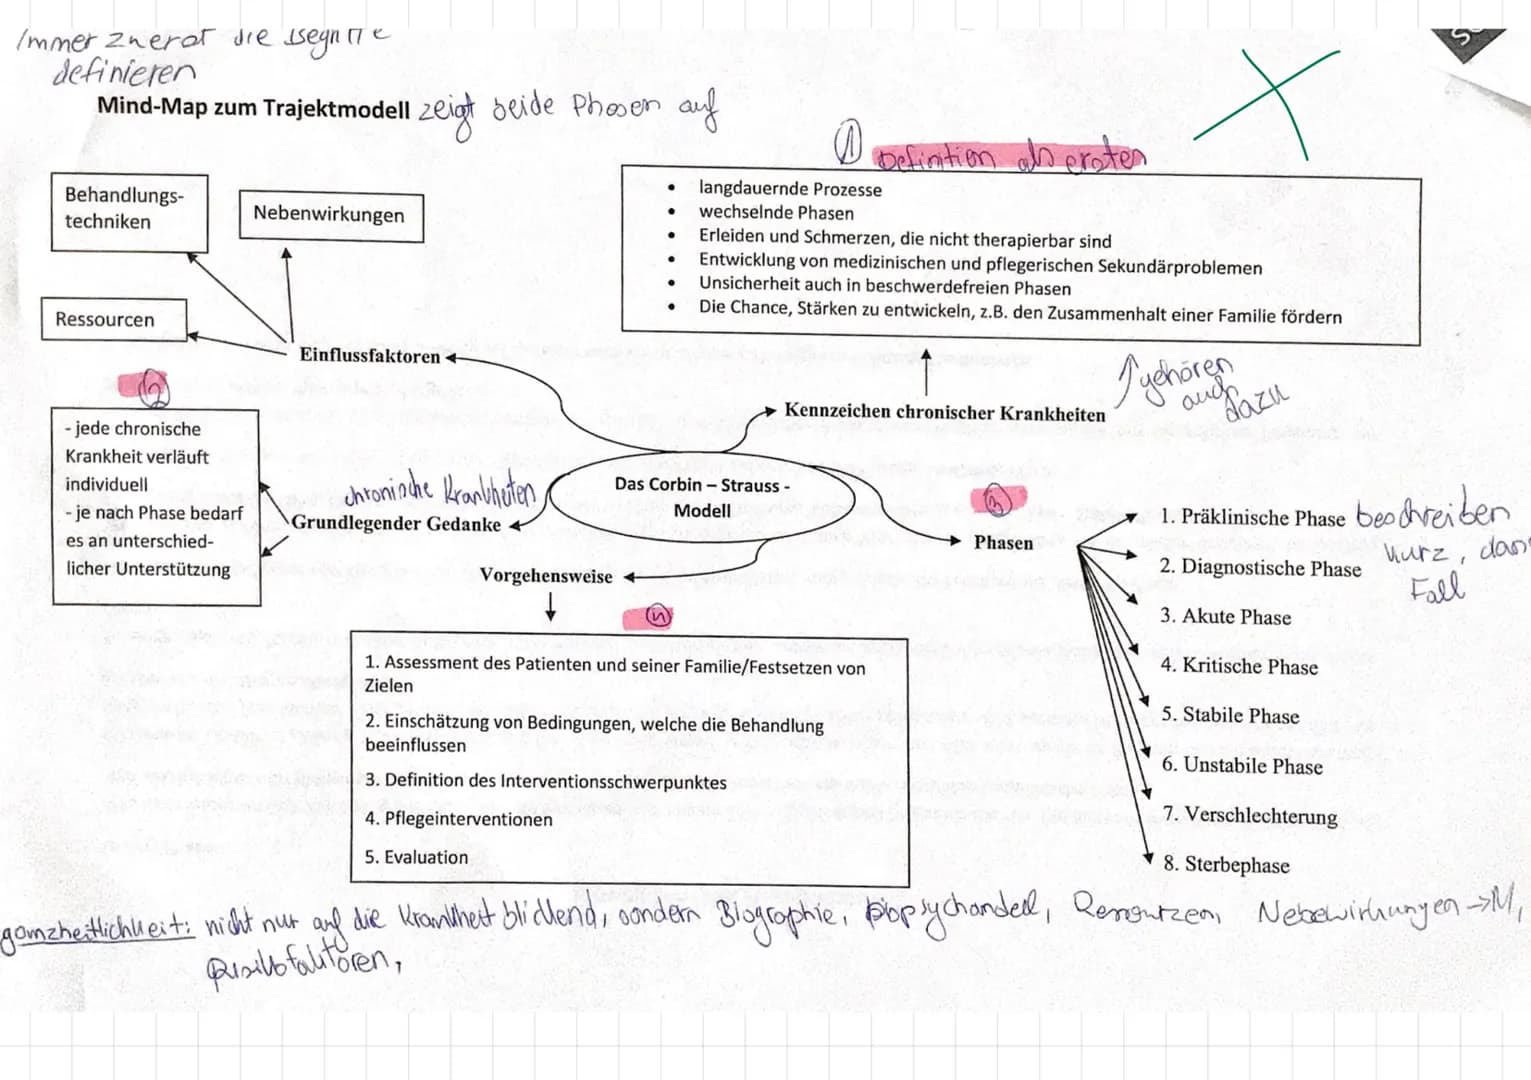 Immer zuerst die Begriffe
definieren
Mind-Map zum Trajektmodell zeigt beide Phasen auf
① Definition als ersten
Behandlungs-
techniken
Nebenwirkungen
Ressourcen
Einflussfaktoren
• langdauernde Prozesse
• wechselnde Phasen
• Erleiden und Schmerzen, die nicht therapierbar sind
• Entwicklung von medizinischen und pflegerischen Sekundärproblemen
• Unsicherheit auch in beschwerdefreien Phasen
• Die Chance, Stärken zu entwickeln, z.B. den Zusammenhalt einer Familie fördern
↑ gehören
auch
dazu
Kennzeichen chronischer Krankheiten
②
- jede chronische
Krankheit verläuft
individuell
- je nach Phase bedarf
es an unterschied-
licher Unterstützung
chronische Krankheiten
Grundlegender Gedanke
Das Corbin – Strauss -
Modell
Vorgehensweise
Phasen
1. Präklinische Phase beschreiben
kurz, dann
Fall
2. Diagnostische Phase
3. Akute Phase
4. Kritische Phase
5. Stabile Phase
6. Unstabile Phase
7. Verschlechterung
8. Sterbephase
1. Assessment des Patienten und seiner Familie/Festsetzen von
Zielen
2. Einschätzung von Bedingungen, welche die Behandlung
beeinflussen
3. Definition des Interventionsschwerpunktes
4. Pflegeinterventionen
5. Evaluation
ganzheitlichkeit: nicht nur auf die Krankheit blickend, sondern Biographie, Ressourzen, Nebewirkungen → M,
Risikofaktoren,